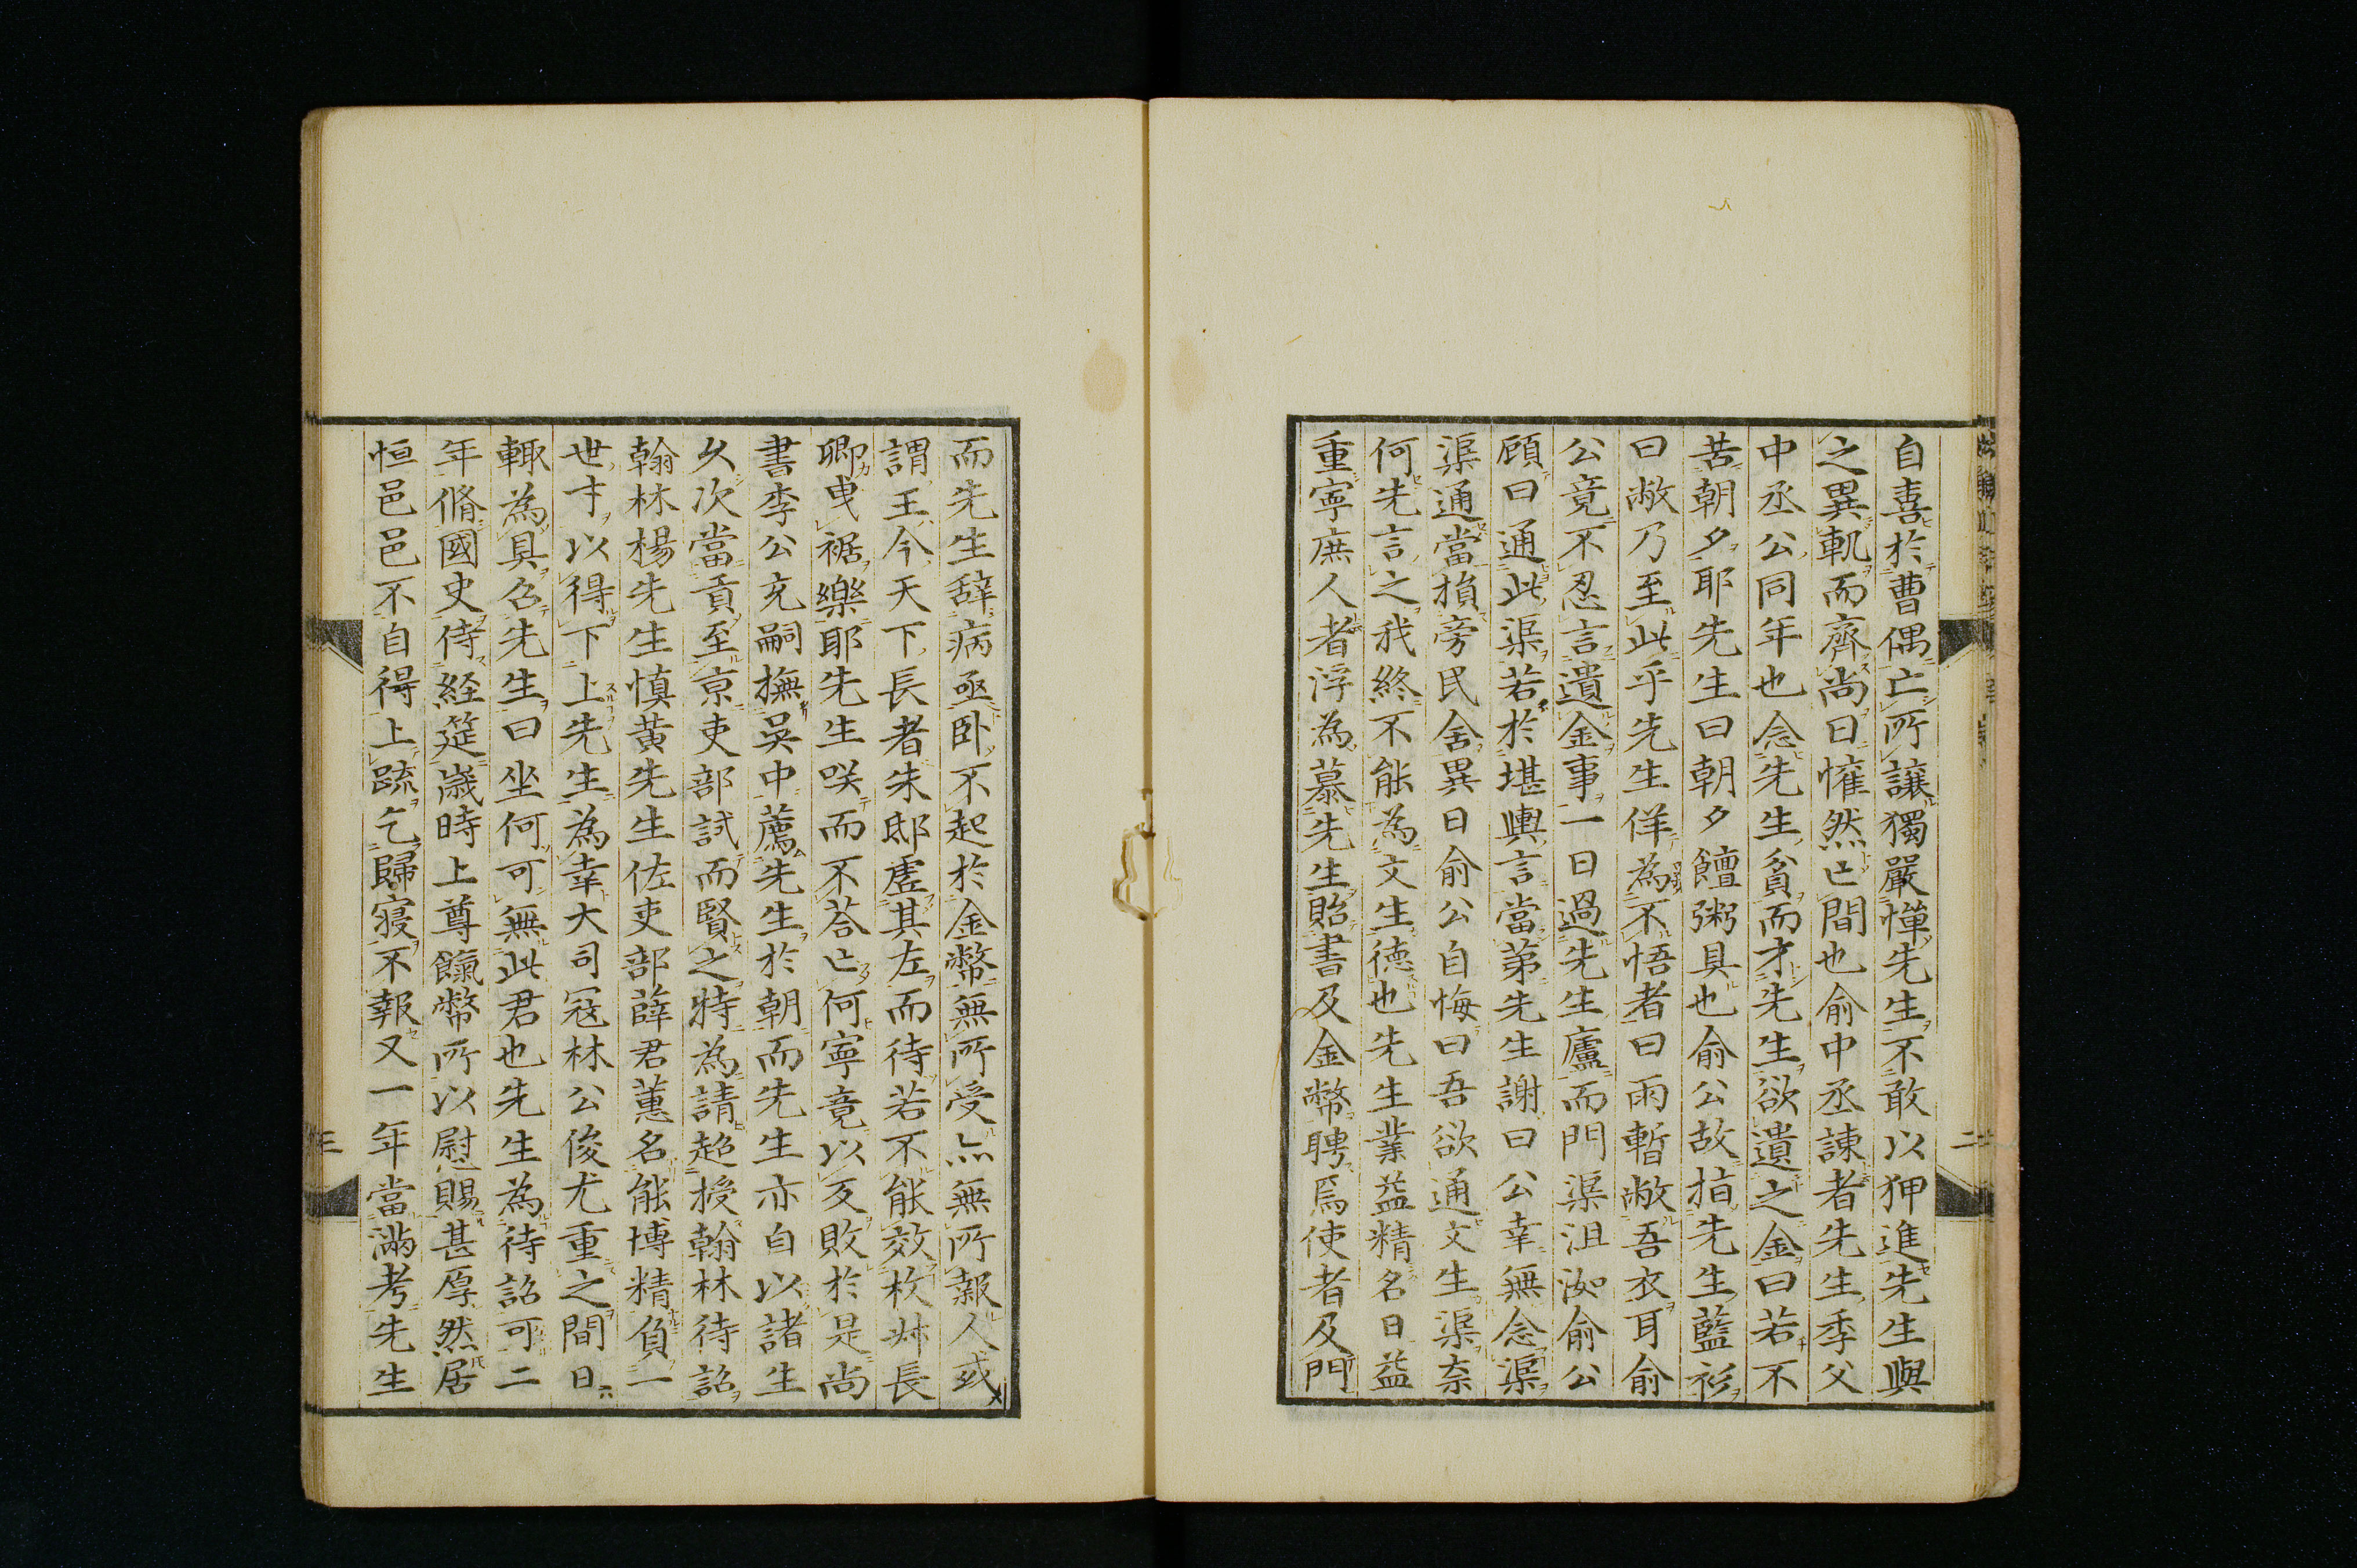 自喜於曹偶亡所讓獨嚴憚先生不敢以狎進先生與
之異軌而齊尚曰懽然亡間也俞中丞諫者先生季父
中丞公同年也念先生貧而才先生欲遺之金曰若不
苦朝夕耶先生曰朝夕饘粥具也俞公故指先生藍衫
曰敝乃至此乎先生佯為不悟者曰雨暫敝吾衣耳俞
公竟不忍言遺金事一日過先生廬而門渠沮洳俞公
顧曰通此渠若於堪輿言當第先生謝曰公幸無念渠
渠通當損旁民舍異日俞公自悔曰吾欲通文生渠奈
何先言之我終不能為文生德也先生業益精名日益
重寧庶人者浮為慕先生貽書及金幣聘焉使者及門
而先生辭病亟卧不起於金幣無所受亦無所報人或
謂王今天下長者朱邸虛其左而待若不能效枚叔長
卿曳裾樂耶先生咲而不荅亡何寧竟以反敗於是尚
書李公充嗣撫吳中薦先生於朝而先生亦自以諸生
久次當貢至京吏部試而賢之特為請超授翰林待詔
翰林楊先生慎黄先生佐吏部薛君蕙名能博精負一
世才以得下上先生為幸大司寇林公俊尤重之間日
輙為具召先生曰坐何可無此君也先生為待詔可二
年脩國史侍経筵歲時上尊餼幣所以慰賜甚厚然居
恒邑邑不自得上疏乞歸寢不報又一年當滿考先生
二
三